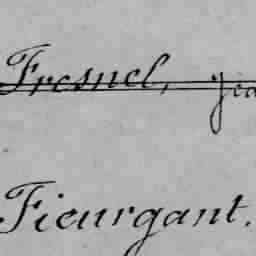 Fresnel, Jea
Fieurgant.